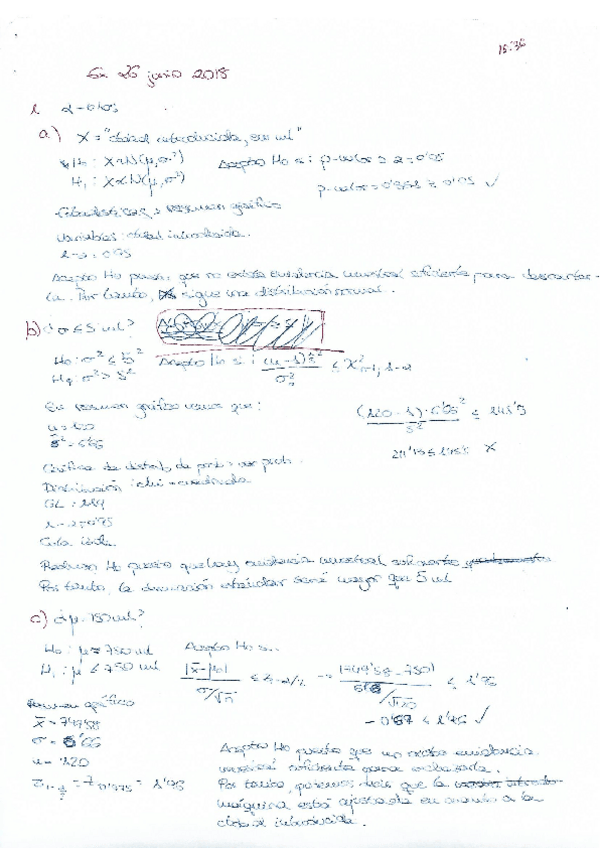 15:36
Ex 25 junio 2018
1. α = 0'05
a) X = "cantidad introducida, en ml"
H₀: X ~ N(μ, σ²) Acepto H₀ si: p-valor ≥ α = 0'05
H₁: X ≁ N(μ, σ²) p-valor = ≥ 0'05 ✓
Estadísticas > resumen gráfico
Variables: introducida.
1-α = 0'95
Acepto H₀ puesto que no existe evidencia muestral suficiente para descartar-
la. Por tanto, sigue una distribución normal.
b) ¿σ ≤ 5 ml?
H₀: σ² ≤ 5² Acepto H₀ si: (n-1)ŝ²/σ₀² ≤ χ²n-1, 1-α
H₁: σ² > 5²
En resumen gráfico vemos que: (120-1)·6'65²/5² ≤ 145'
n = 120
ŝ = 6'65 ≤ X
Gráfica de distrib. de prob > ver prob.
Distribución: chi-cuadrada
GL: 119
1-α = 0'95
Cola izda.
Rechazo H₀ puesto que hay evidencia muestral suficiente
Por tanto, la desviación estándar será mayor que 5 ml
c) ¿μ = 750 ml?
H₀: μ = 750 ml Acepto H₀ si..
H₁: μ ≠ 750 ml |x̄-μ₀|/(σ/√n) ≤ z1-α/2 → |749'58-750|/(6'65/√120) ≤ 1'96
Resumen gráfico
x̄ = 749'58
σ = 6'65
n = 120 ≤ 1'96 ✓
z1-α/2 = z0'975 = 1'96
Acepto H₀ puesto que no existe evidencia
muestral suficiente para rechazarla.
Por tanto, podemos decir que la
máquina está ajustada en cuanto a la
cantidad introducida.